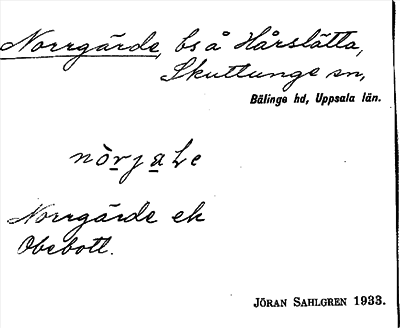 Norrgärde, bs å Hårslätta,
Skuttunge sn,
Bälinge hd, Uppsala län.
Norrgärde ek
Obebott.
JÖRAN SAHLGREN 1933.